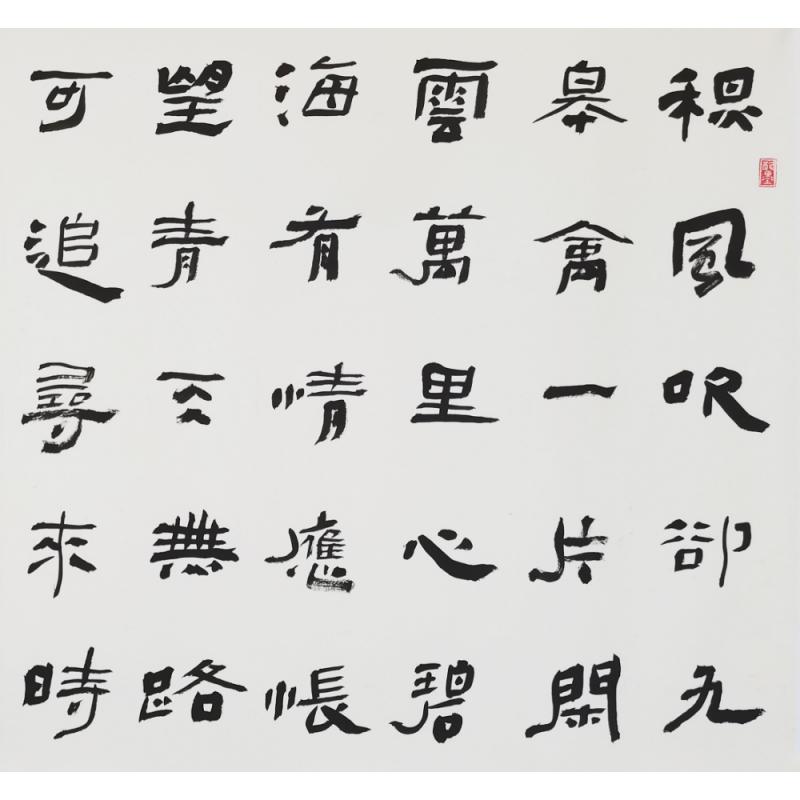 秋風吹卻九
皋禽一片閑
雲萬里心碧
海有情應悵
望青天無路
可追尋來時